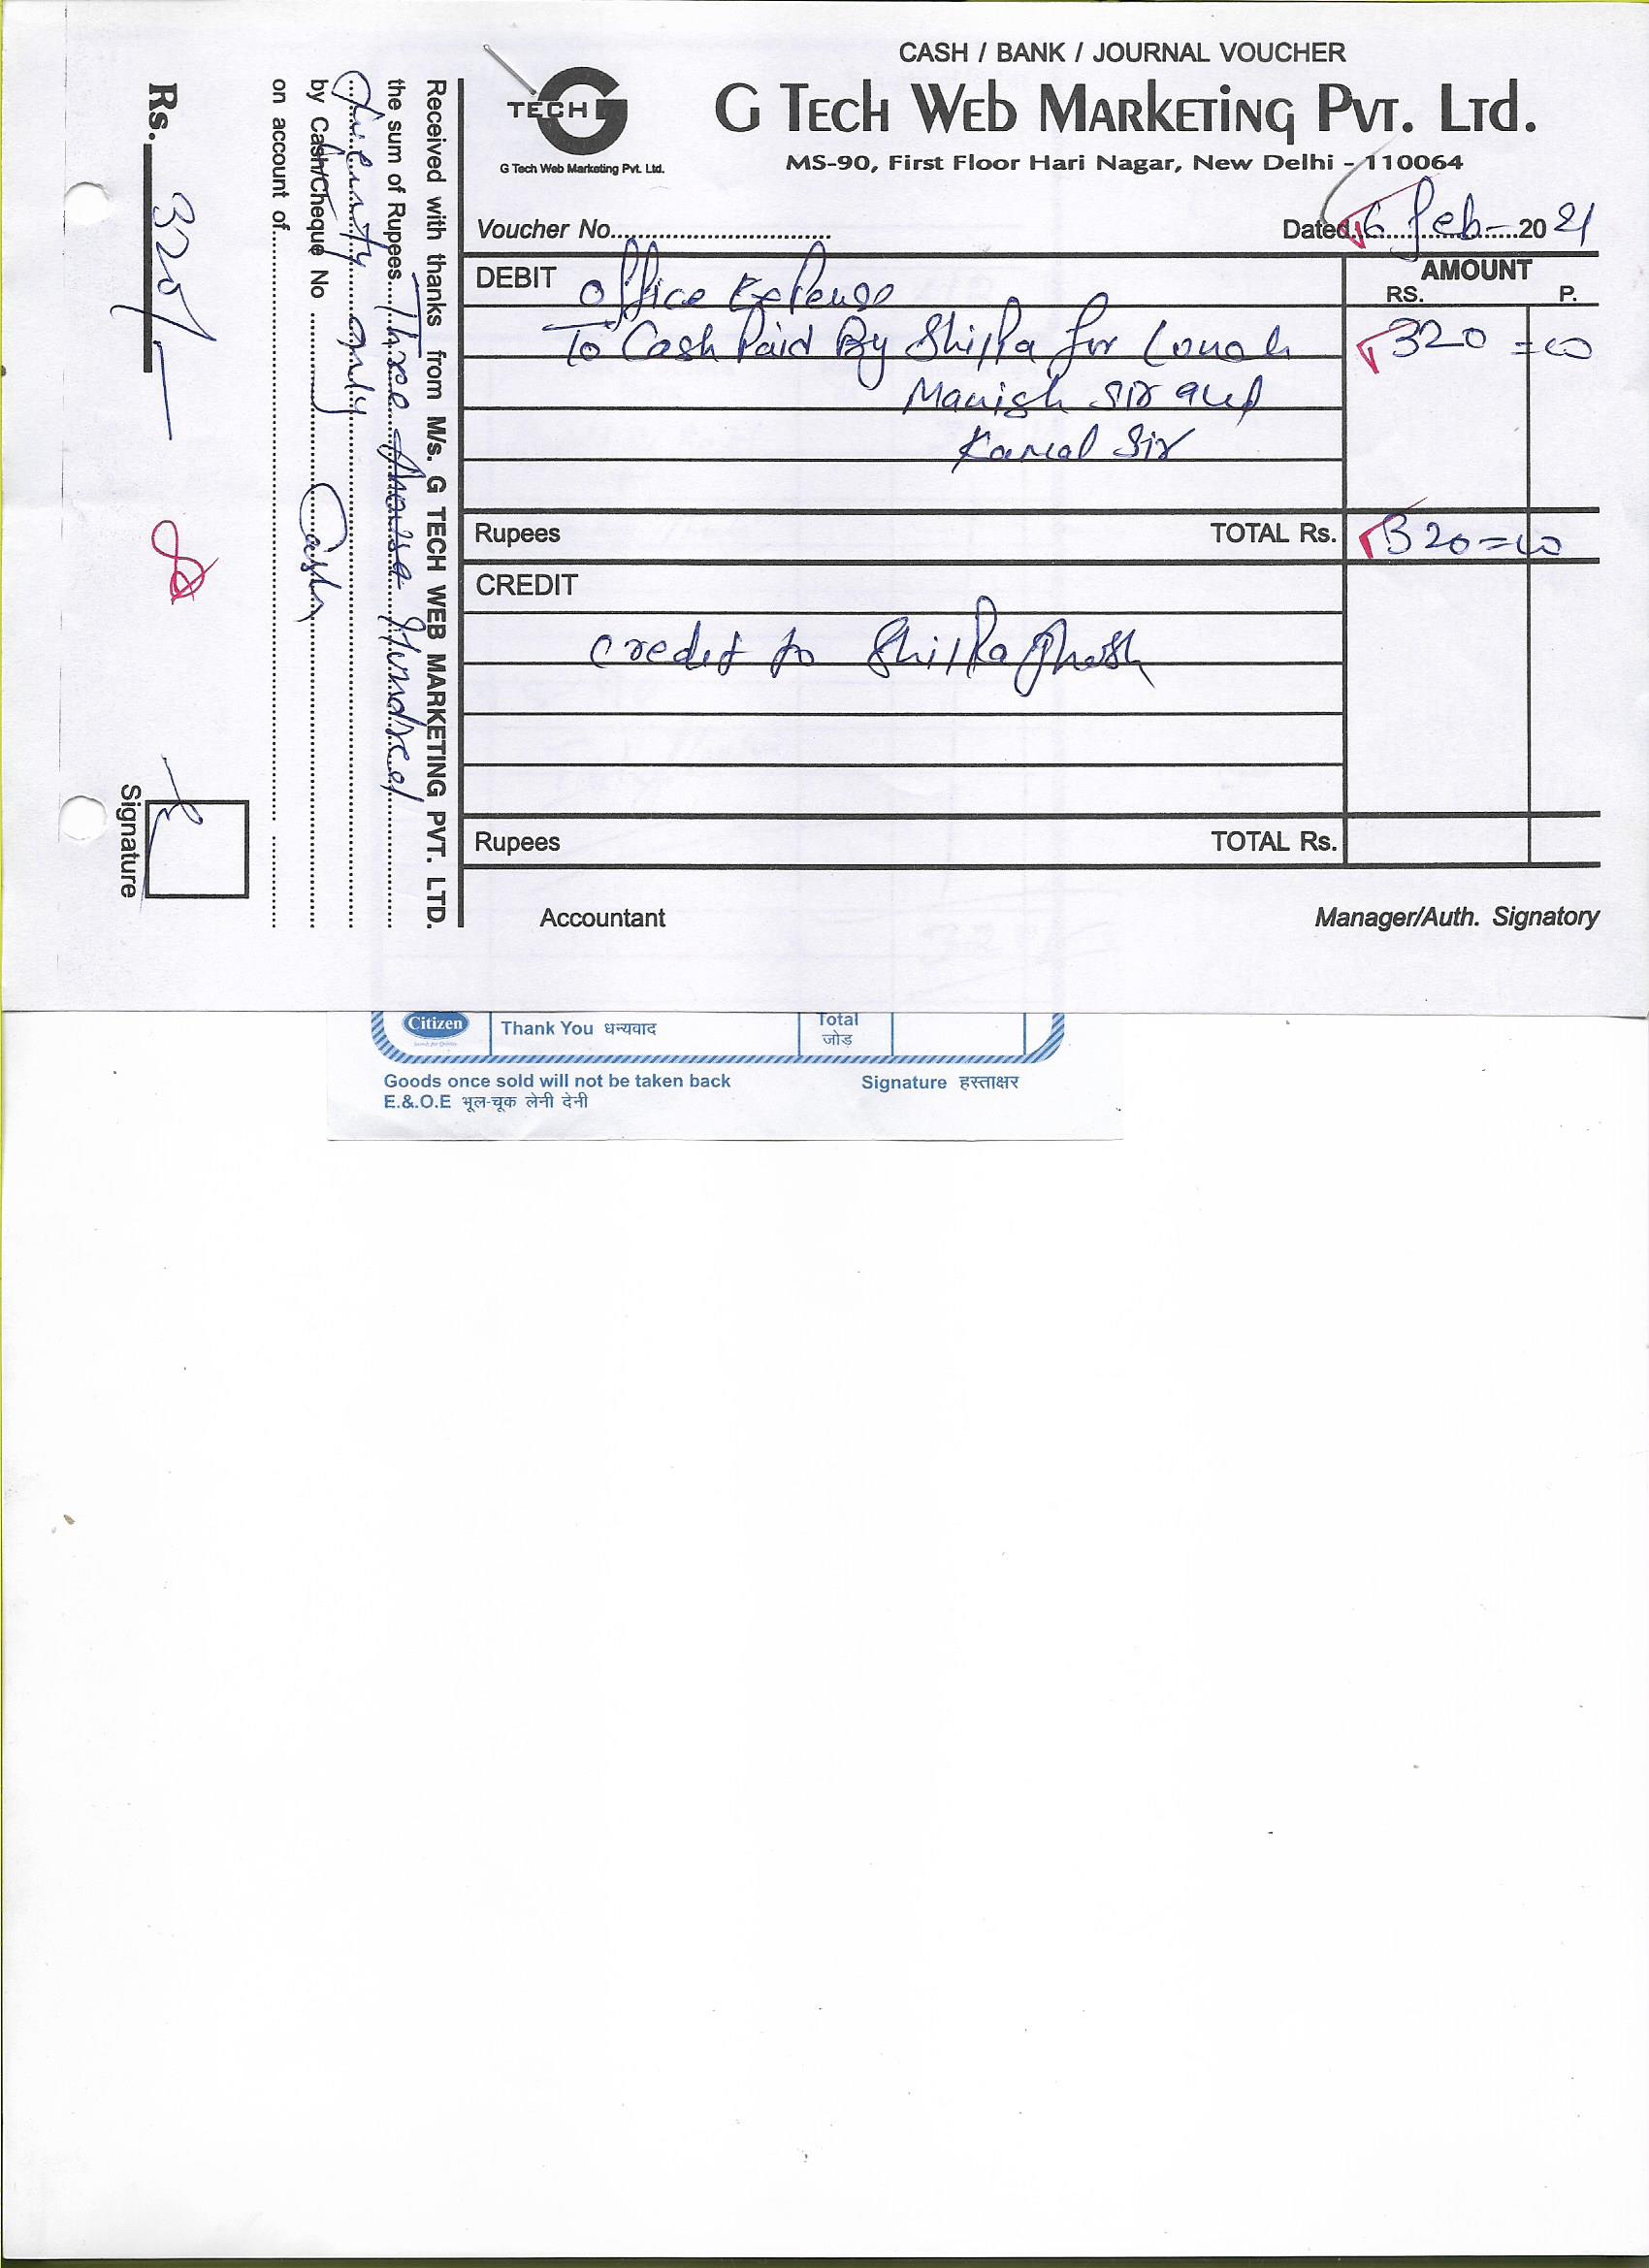 CASH / BANK / JOURNAL VOUCHER
TECH G
G Tech Web Marketing Pvt. Ltd.
G Tech Web Marketing Pvt. Ltd.
MS-90, First Floor Hari Nagar, New Delhi - 110064
Voucher No..................................
Dated 6 Feb 2021
DEBIT office Expense
AMOUNT
RS. P.
To Cash Paid By Shilpa for 320 = 00
Manish Sir and
Kamal Sir
Rupees TOTAL Rs. 320=00
CREDIT
credit to Shilpa Ghosh
Rupees TOTAL Rs.
Accountant Manager/Auth. Signatory
Received with thanks from M/s. G TECH WEB MARKETING PVT. LTD.
the sum of Rupees Three Hundred
Twenty only
by Cash/Cheque No Cash
on account of
Rs. 320/-
Signature
Citizen
Thank You धन्यवाद
Total
जोड़
Goods once sold will not be taken back
E.&.O.E भूल-चूक लेनी देनी
Signature हस्ताक्षर